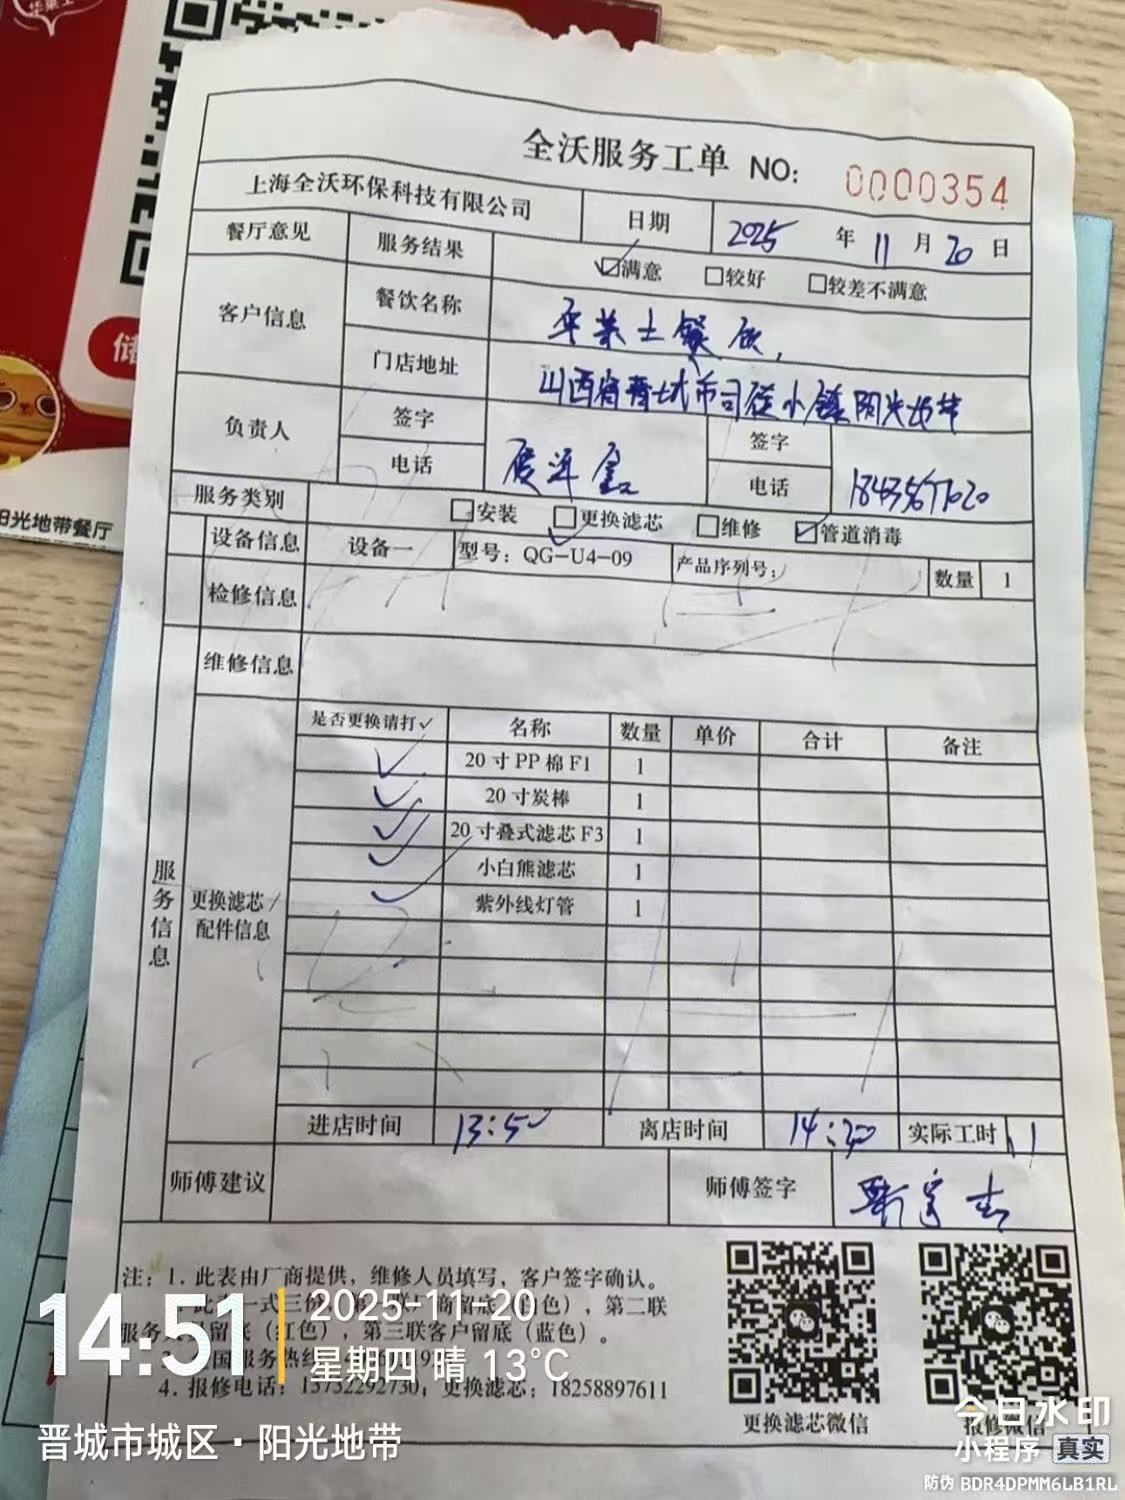 华莱士
储
阳光地带餐厅
全沃服务工单 NO: 0000354
上海全沃环保科技有限公司 日期 2025 年 11 月 20 日
餐厅意见 服务结果 ☑满意 □较好 □较差不满意
客户信息 餐饮名称 华莱士餐饮,
门店地址 山西省晋城市司徒小镇阳光地带
负责人 签字 签字
电话 电话
服务类别 □安装 □更换滤芯 □维修 ☑管道消毒
设备信息 设备一 型号: QG-U4-09 产品序列号: 数量 1
检修信息
维修信息
服务信息
更换滤芯/
配件信息
是否更换请打✓ 名称 数量 单价 合计 备注
✓ 20寸PP棉F1 1
✓ 20寸炭棒 1
✓ 20寸叠式滤芯F3 1
✓ 小白熊滤芯 1
✓ 紫外线灯管 1
进店时间 13:50 离店时间 14:20 实际工时
师傅建议 师傅签字
注: 1. 此表由厂商提供，维修人员填写，客户签字确认。
此表一式三份，商留底（白色），第二联
服务 留底（红色），第三联客户留底（蓝色）。
国服务热线
4. 报修电话: 15732292730; 更换滤芯: 18258897611
更换滤芯微信
报修微信
14:51
2025-11-20
星期四 晴 13°C
晋城市城区·阳光地带
今日水印
小程序 真实
防伪 BDR4DPMM6LB1RL